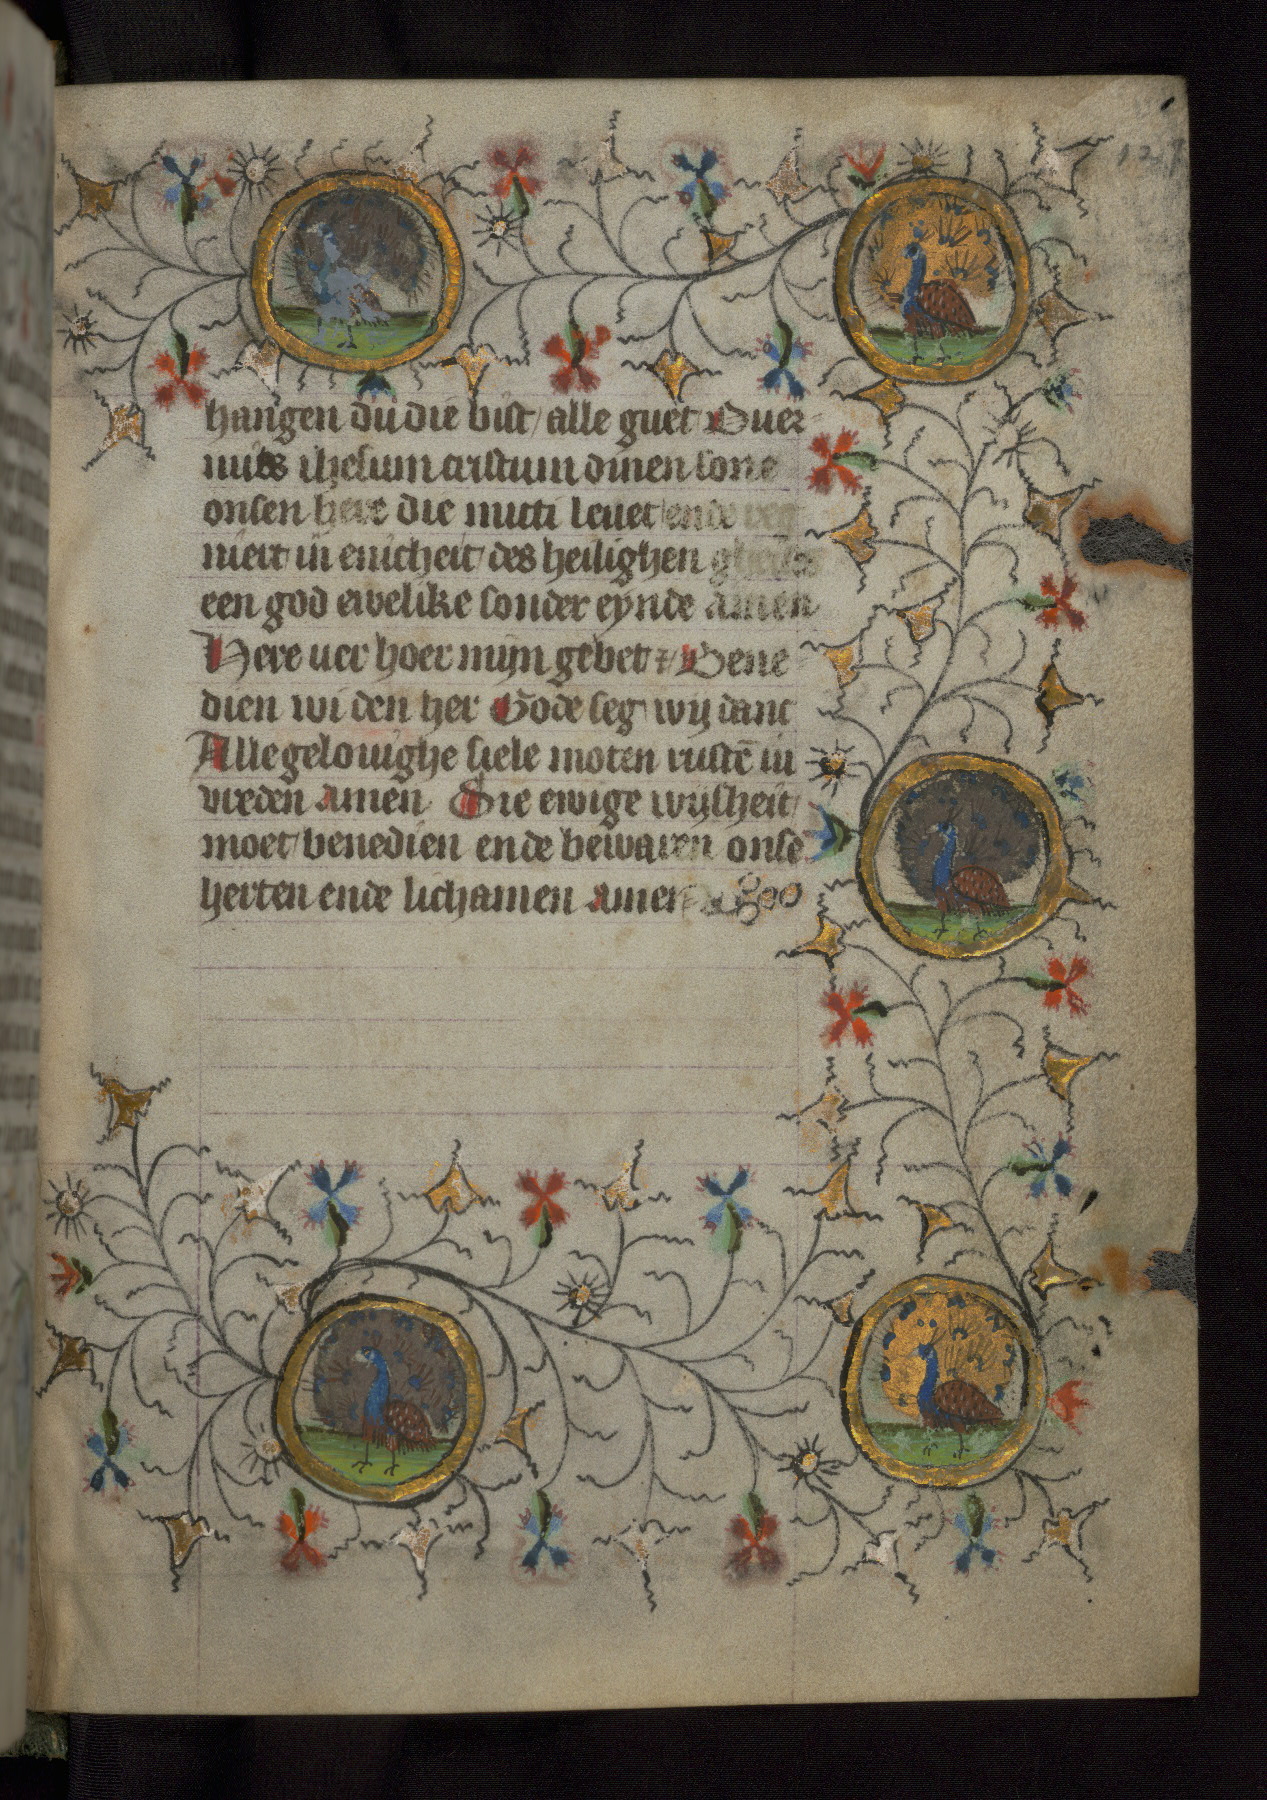 hangen du die bist / alle guet Ouer
mids ihesum cristum dinen sone
onsen here die mitti leuet ende reg
niert in enicheit des heilighen gheistes
een god ewelike sonder eynde amen
Here uer hoer mijn gebet ⁊ Bene
dien wi den her Gode seg wij danc
Alle gelouighe siele moten rustē in
vreden Amen Die ewige wijsheit
moet benedien ende bewaren onse
herten ende lichamen Amen